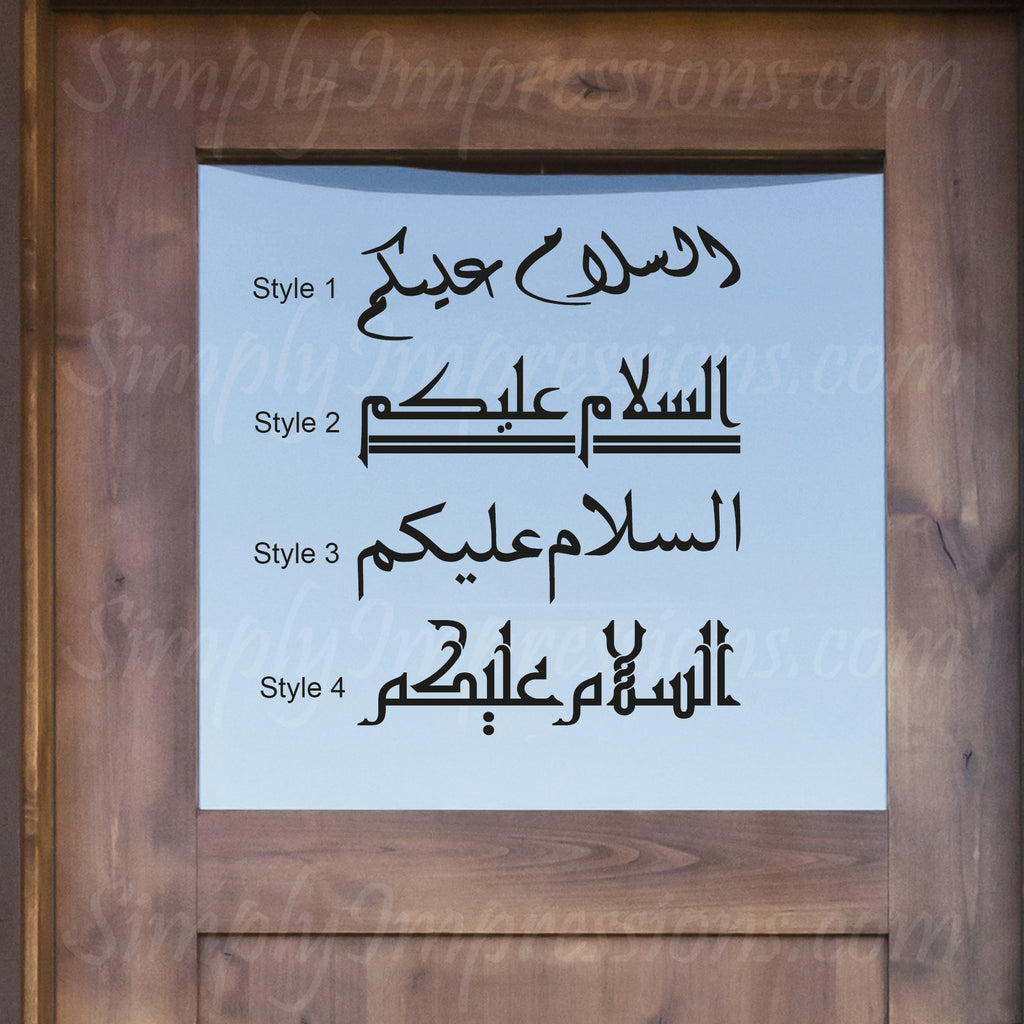 SimplyImpressions.com
Style 1 السلام عليكم
SimplyImpressions.com
Style 2 السلام عليكم
Style 3 السلام عليكم
SimplyImpressions.com
Style 4 السلام عليكم
SimplyImpressions.com